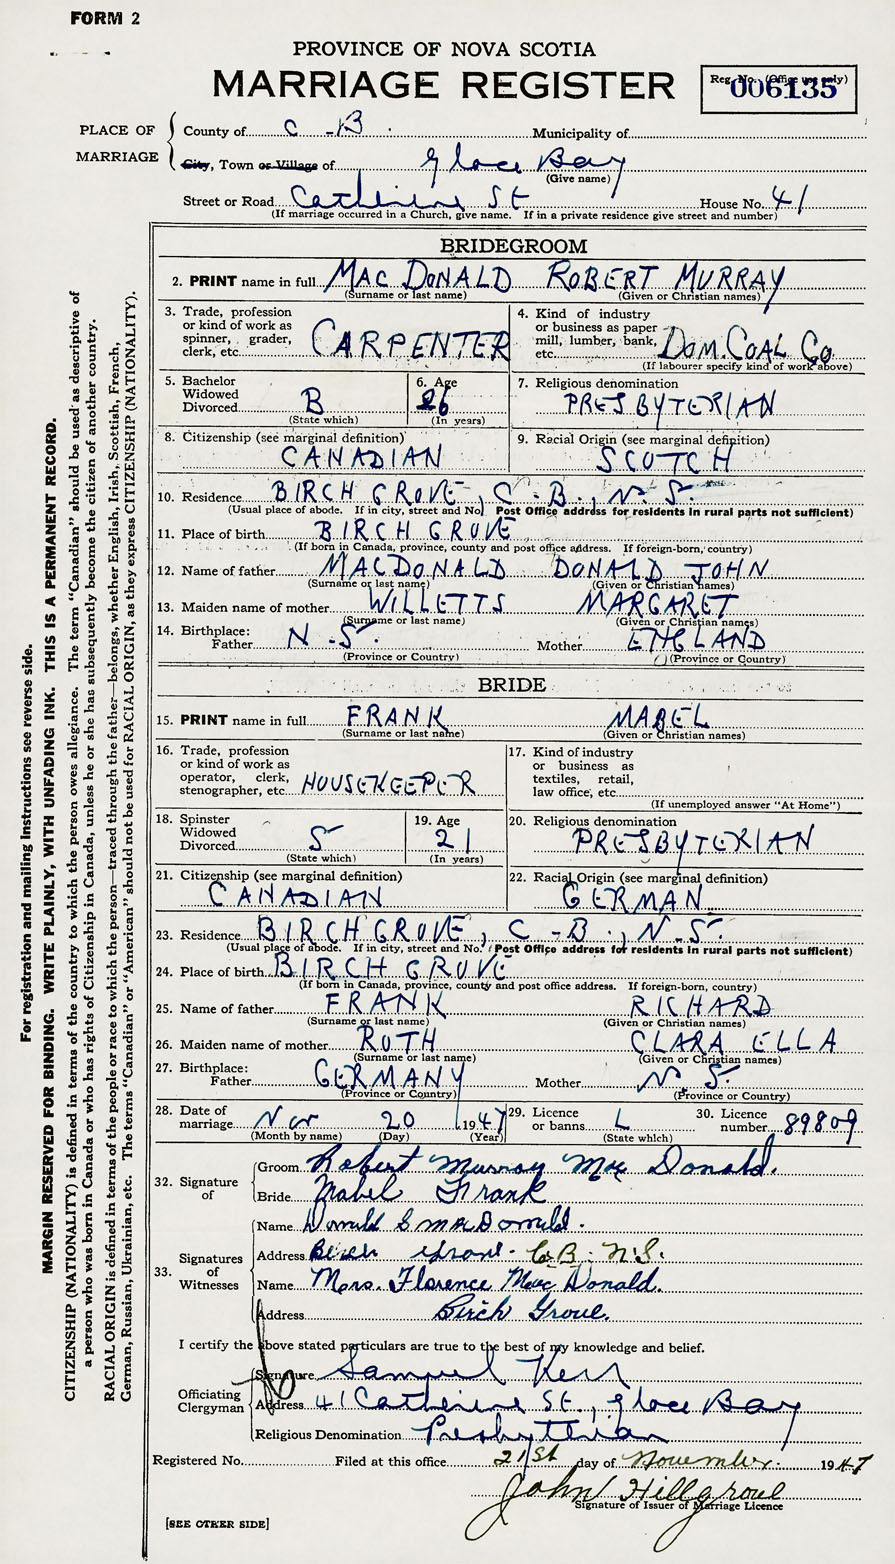 FORM 2
PROVINCE OF NOVA SCOTIA
MARRIAGE REGISTER
Reg. No. (Office use only)
006135
PLACE OF MARRIAGE
County of C-B. Municipality of
City, Town or Village of Glace Bay
(Give name)
Street or Road Catherine St House No. 41
(If marriage occurred in a Church, give name. If in a private residence give street and number)
BRIDEGROOM
2. PRINT name in full MAC DONALD ROBERT MURRAY
(Surname or last name) (Given or Christian names)
3. Trade, profession or kind of work as spinner, grader, clerk, etc. CARPENTER
4. Kind of industry or business as paper mill, lumber, bank, etc. DOM. COAL Co
(If labourer specify kind of work above)
5. Bachelor Widowed Divorced B
(State which)
6. Age 26
(In years)
7. Religious denomination
PRESBYTERIAN
8. Citizenship (see marginal definition)
CANADIAN
9. Racial Origin (see marginal definition)
SCOTCH
10. Residence BIRCH GROVE, C-B., N.S.
(Usual place of abode. If in city, street and No. Post Office address for residents in rural parts not sufficient)
11. Place of birth BIRCH GROVE
(If born in Canada, province, county and post office address. If foreign-born, country)
12. Name of father MACDONALD DONALD JOHN
(Surname or last name) (Given or Christian names)
13. Maiden name of mother WILLETTS MARGARET
(Surname or last name) (Given or Christian names)
14. Birthplace:
Father N.S. Mother ENGLAND
(Province or Country) (Province or Country)
BRIDE
15. PRINT name in full FRANK MABEL
(Surname or last name) (Given or Christian names)
16. Trade, profession or kind of work as operator, clerk, stenographer, etc. HOUSEKEEPER
17. Kind of industry or business as textiles, retail, law office, etc.
(If unemployed answer "At Home")
18. Spinster Widowed Divorced S
(State which)
19. Age 21
(In years)
20. Religious denomination
PRESBYTERIAN
21. Citizenship (see marginal definition)
CANADIAN
22. Racial Origin (see marginal definition)
GERMAN
23. Residence BIRCH GROVE, C-B., N.S.
(Usual place of abode. If in city, street and No. Post Office address for residents in rural parts not sufficient)
24. Place of birth BIRCH GROVE
(If born in Canada, province, county and post office address. If foreign-born, country)
25. Name of father FRANK RICHARD
(Surname or last name) (Given or Christian names)
26. Maiden name of mother RUTH CLARA ELLA
(Surname or last name) (Given or Christian names)
27. Birthplace:
Father GERMANY Mother N.S.
(Province or Country) (Province or Country)
28. Date of marriage Nov 20 1947
(Month by name) (Day) (Year)
29. Licence or banns L
(State which)
30. Licence number 89809
32. Signature of
Groom Robert Murray Mac Donald.
Bride Mabel Frank
33. Signatures of Witnesses
Name Donald S MacDonald.
Address Birch Grove. C.B. N.S.
Name Mrs. Florence Mac Donald.
Address Birch Grove.
I certify the above stated particulars are true to the best of my knowledge and belief.
Officiating Clergyman
Signature Samuel Kerr
Address 41 Catherine St., Glace Bay
Religious Denomination Presbyterian
Registered No. Filed at this office 21st day of November. 1947
John Hillgrove
Signature of Issuer of Marriage Licence
[SEE OTHER SIDE]
For registration and mailing instructions see reverse side.
MARGIN RESERVED FOR BINDING. WRITE PLAINLY, WITH UNFADING INK. THIS IS A PERMANENT RECORD.
CITIZENSHIP (NATIONALITY) is defined in terms of the country to which the person owes allegiance. The term "Canadian" should be used as descriptive of
a person who was born in Canada or who has rights of Citizenship in Canada, unless he or she has subsequently become the citizen of another country.
RACIAL ORIGIN is defined in terms of the people or race to which the person—traced through the father—belongs, whether English, Irish, Scottish, French,
German, Russian, Ukrainian, etc. The terms "Canadian" or "American" should not be used for RACIAL ORIGIN, as they express CITIZENSHIP (NATIONALITY).